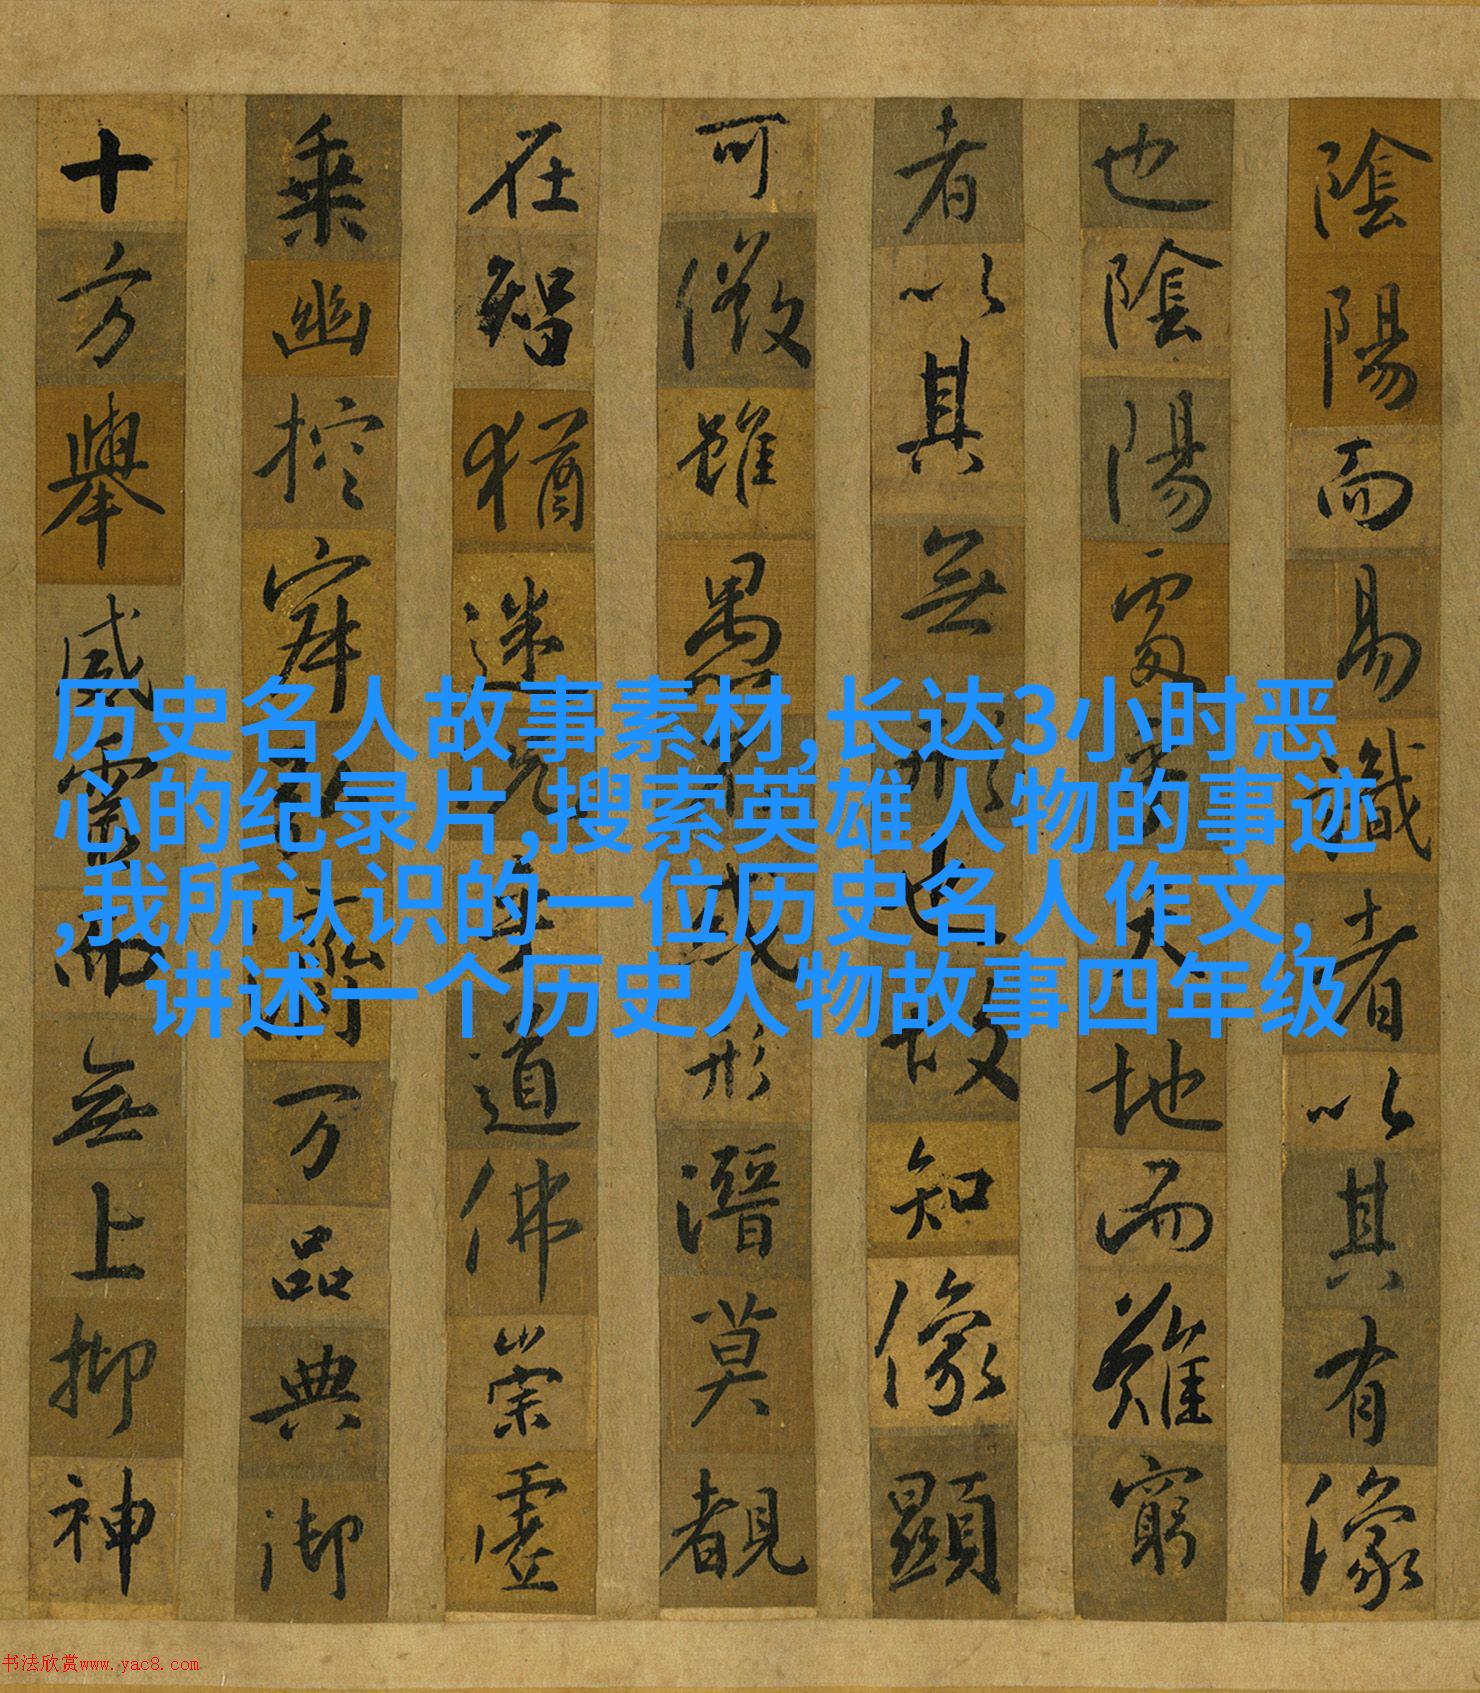 陰陽而易識者以其有像
也陰陽處乎天地而難窮
者以其無形也故知像顯
可徵雖愚不惑形潛莫覩
在智猶迷況乎道佛崇虛
乗幽控寂弘濟万品典御
十方舉威靈而無上抑神
历史名人故事素材,长达3小时恶
心的纪录片,搜索英雄人物的事迹
,我所认识的一位历史名人作文,
讲述一个历史人物故事四年级
书法欣赏www.yac8.com